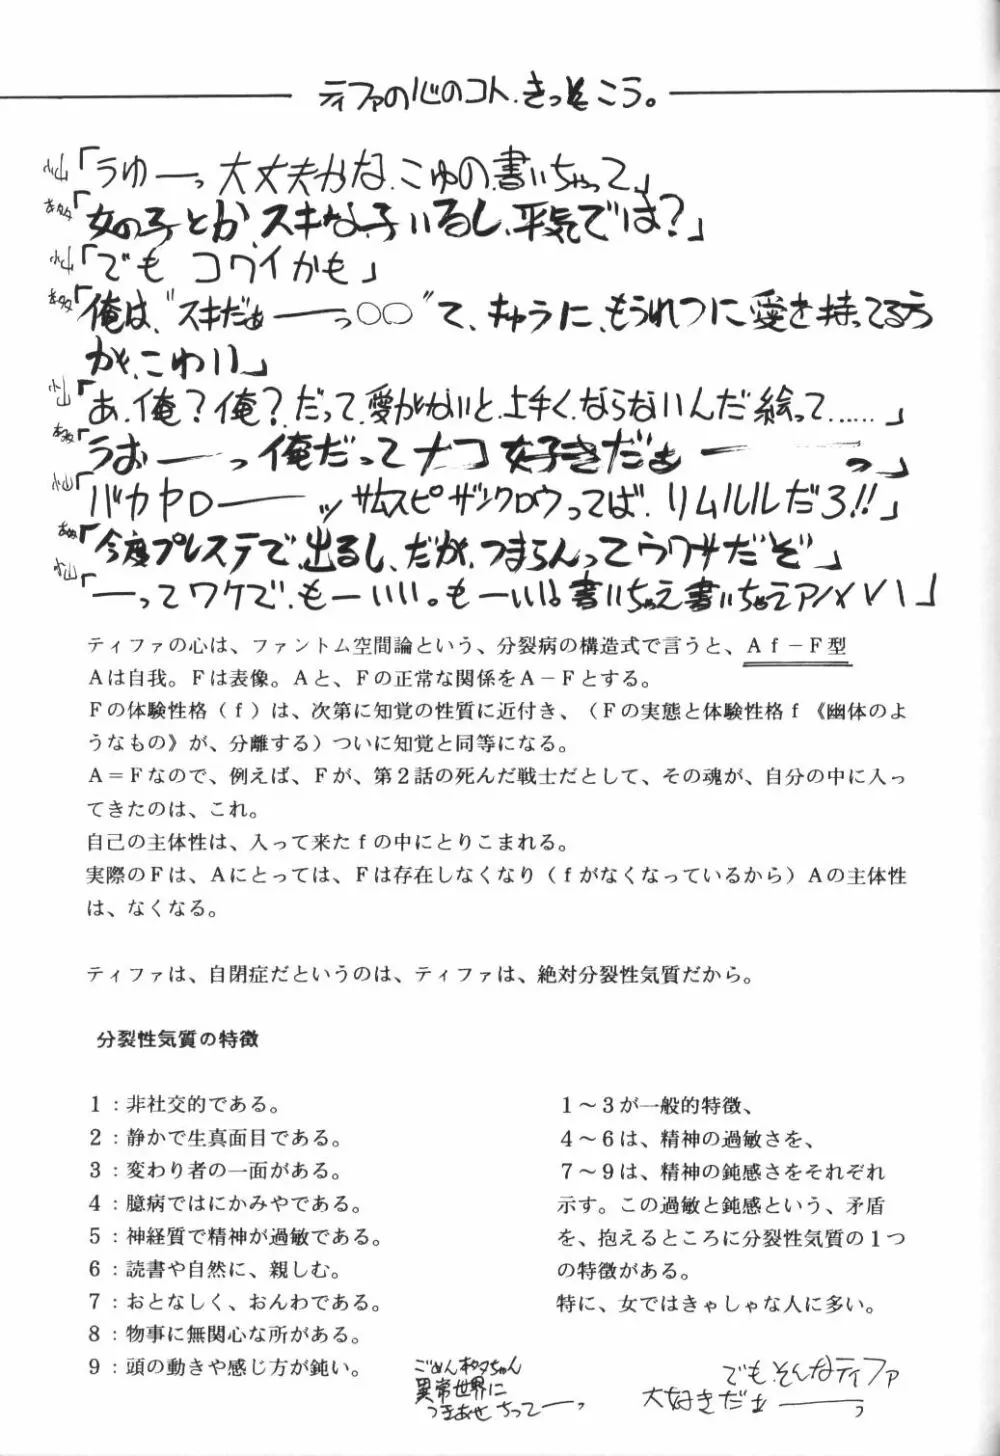 ティファの心のコト.きっとこう。
小山「うゆーっ大丈夫かな.こゆの書いちゃって」
「女の子とか、スキな子いるし、平気では?」
小山「でも コワイかも」
「俺は、“スキだぁーーっ○○”て、きゅうに、もうれつに愛を持ってる方
が、こわい」
小山「あ.俺?俺?だって、愛がないと、上手く、ならないんだ絵って……」
「うおーーっ俺だってナコ好きだぁーーっ」
小山「バカヤローーッサムスピザンクロウってば、リムルルだろ!!」
「今度プレステで、出るし、だが、つまらんってウワサだぞ」
小山「ーってワケで、もーいい。もーいい。書いちゃえ書いちゃえアハハハ」
ティファの心は、ファントム空間論という、分裂病の構造式で言うと、Ａｆ－Ｆ型
Ａは自我。Ｆは表像。Ａと、Ｆの正常な関係をＡ－Ｆとする。
Ｆの体験性格（ｆ）は、次第に知覚の性質に近付き、（Ｆの実態と体験性格ｆ《幽体のよ
うなもの》が、分離する）ついに知覚と同等になる。
Ａ＝Ｆなので、例えば、Ｆが、第２話の死んだ戦士だとして、その魂が、自分の中に入っ
てきたのは、これ。
自己の主体性は、入って来たｆの中にとりこまれる。
実際のＦは、Ａにとっては、Ｆは存在しなくなり（ｆがなくなっているから）Ａの主体性
は、なくなる。
ティファは、自閉症だというのは、ティファは、絶対分裂性気質だから。
分裂性気質の特徴
１：非社交的である。
２：静かで生真面目である。
３：変わり者の一面がある。
４：臆病ではにかみやである。
５：神経質で精神が過敏である。
６：読書や自然に、親しむ。
７：おとなしく、おんわである。
８：物事に無関心な所がある。
９：頭の動きや感じ方が鈍い。
１～３が一般的特徴、
４～６は、精神の過敏さを、
７～９は、精神の鈍感さをそれぞれ
示す。この過敏と鈍感という、矛盾
を、抱えるところに分裂性気質の１つ
の特徴がある。
特に、女ではきゃしゃな人に多い。
ごめん ちゃん
異常世界に
つきあせちってーっ
でも.そんなティファ
大好きだぁーーっ